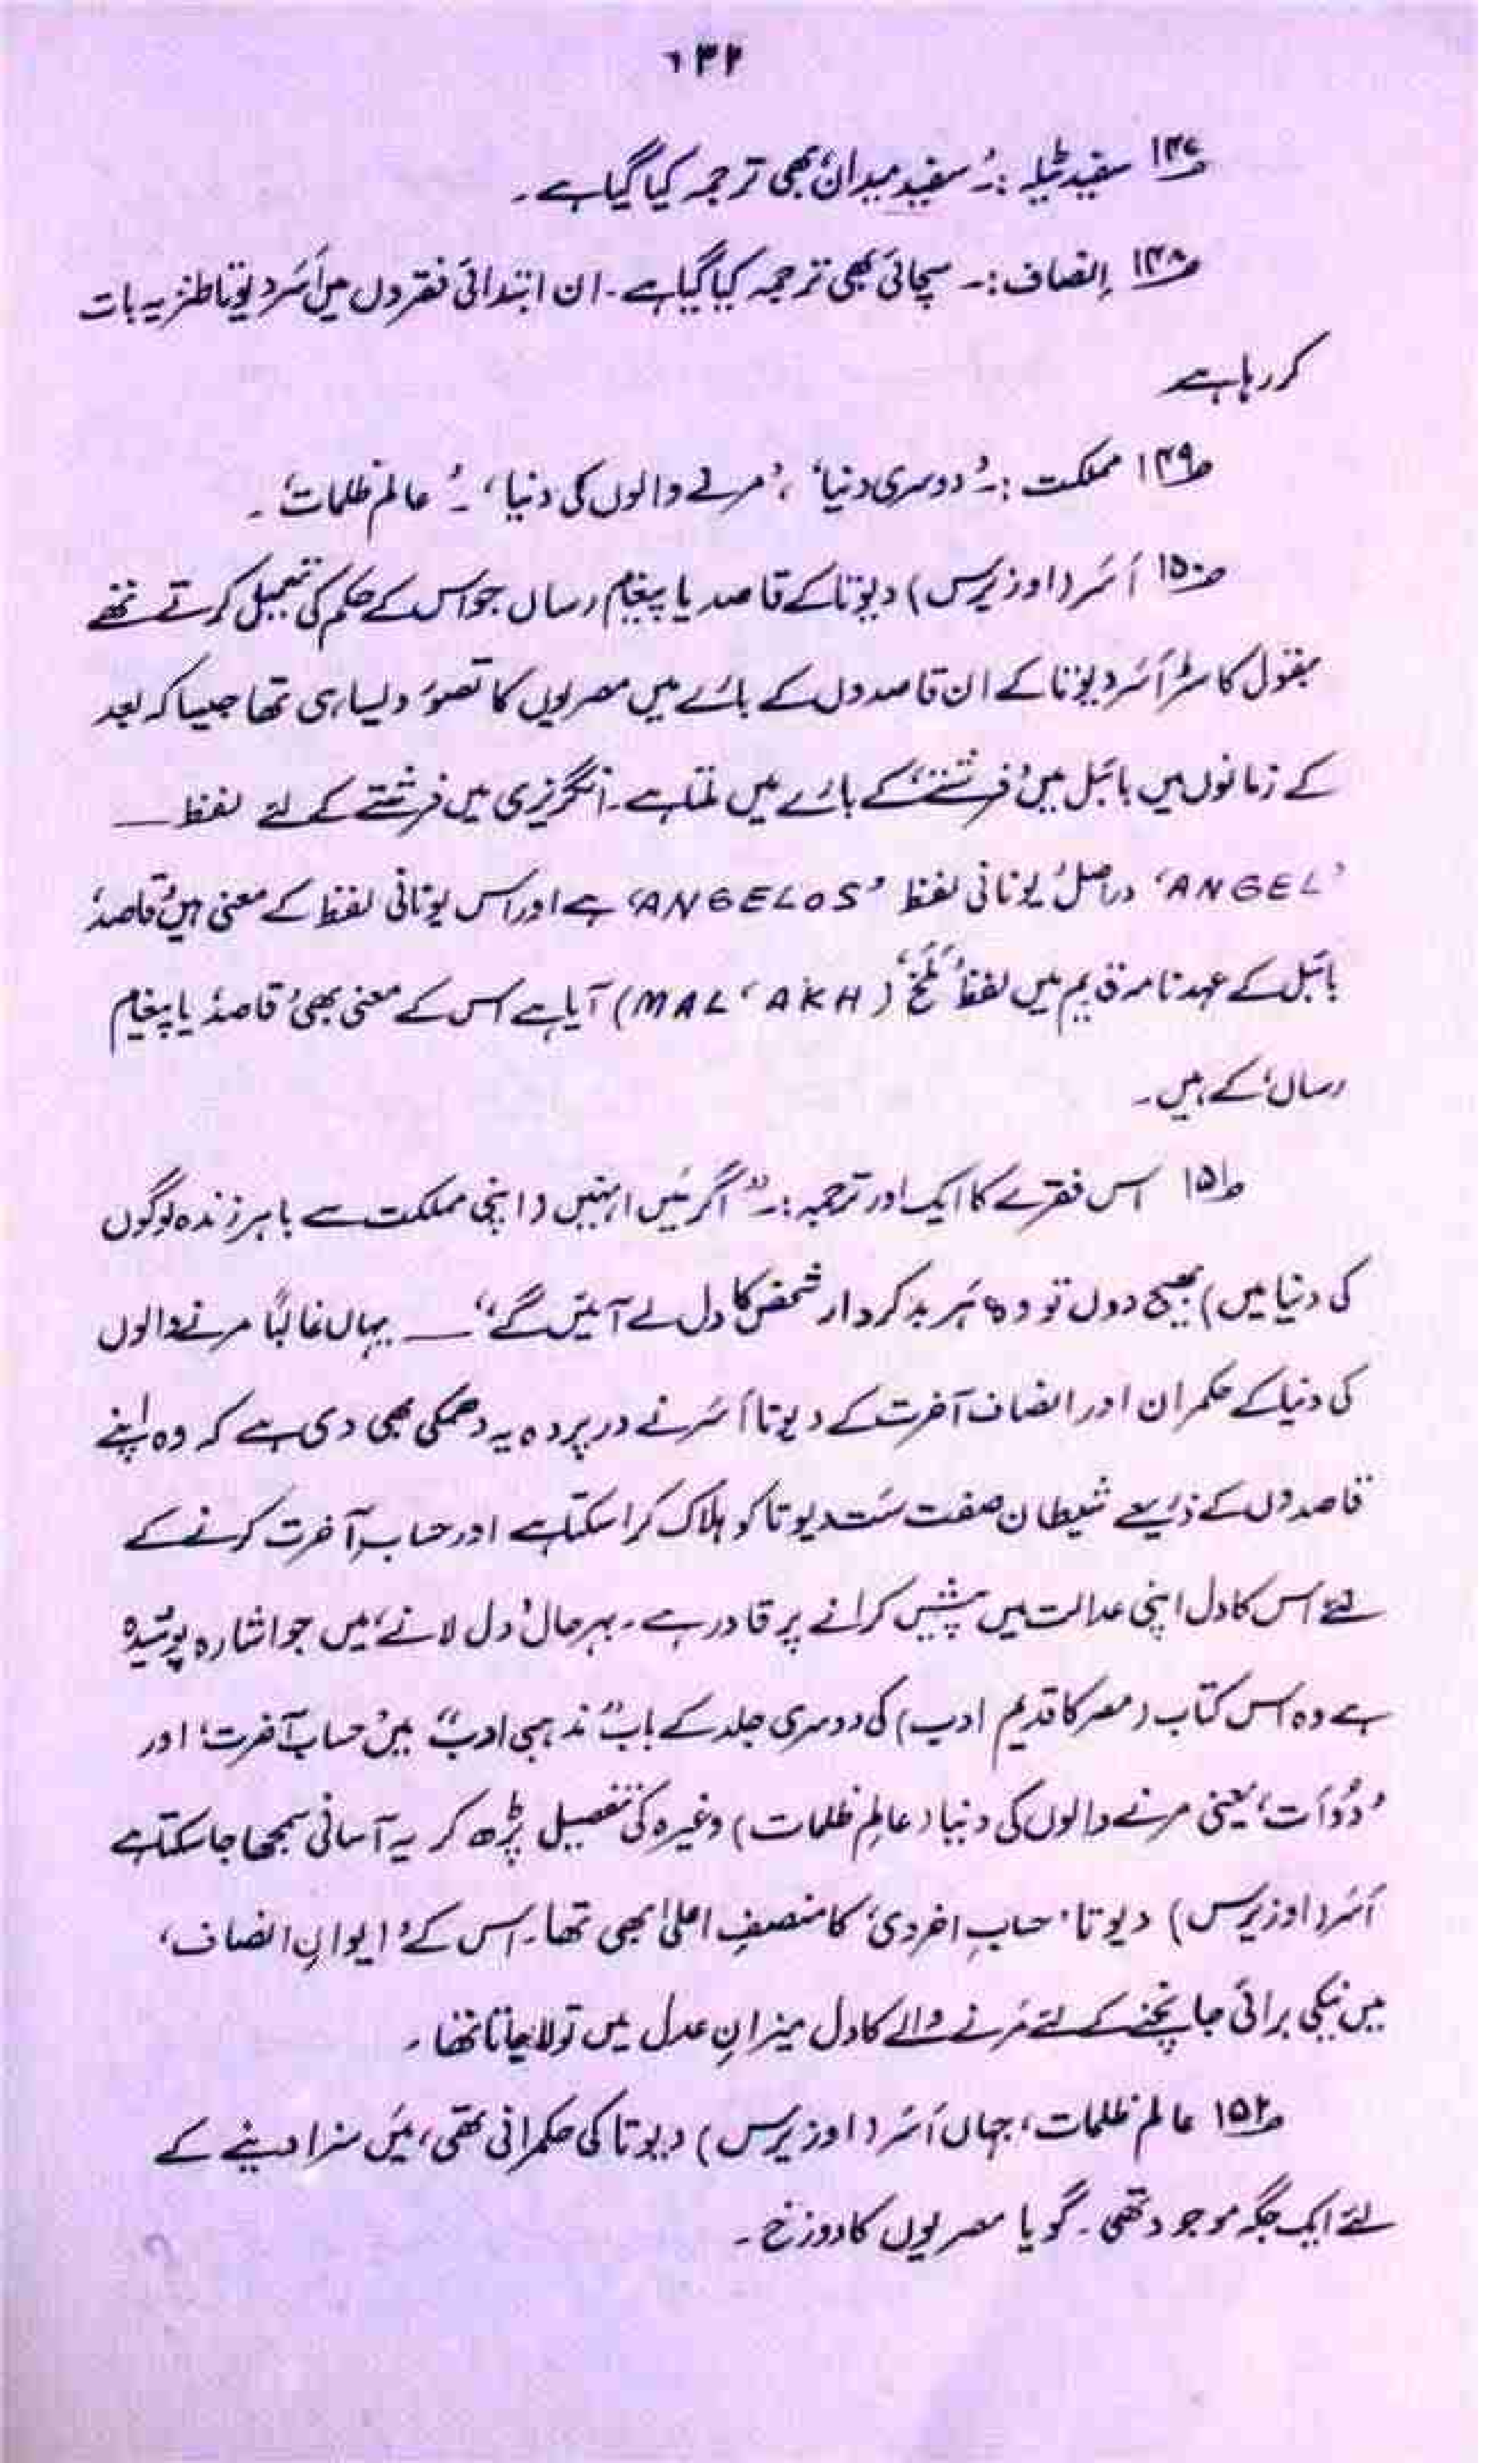 ۱۳۲
۱۴۷ سفید ٹیلہ :۔ ’سفید میدان‘ بھی ترجمہ کیا گیا ہے۔
۱۴۸ اِنصاف :۔ سچائی بھی ترجمہ کیا گیا ہے۔ ان ابتدائی فقروں میں اَسَر دیوتا طنزیہ بات
کر رہا ہے
۱۴۹ مملکت :۔ ’دوسری دنیا‘، ’مرنے والوں کی دنیا‘۔ ’عالم ظلمات‘۔
۱۵۰ اَسَر (اوزیرس) دیوتا کے قاصد یا پیغام رساں جو اس کے حکم کی تعمیل کرتے تھے
بقول کاسٹر اَسَر دیوتا کے ان قاصدوں کے بارے میں مصریوں کا تصوّر ویسا ہی تھا جیسا کہ بعد
کے زمانوں میں بائبل میں ’فرشتے‘ کے بارے میں ملتا ہے۔ انگریزی میں فرشتے کے لئے لفظ —
’ANGEL‘ دراصل یونانی لفظ ’ANGELOS‘ ہے اور اس یونانی لفظ کے معنی ہیں ’قاصد‘
بائبل کے عہد نامہ قدیم میں لفظ ’مَلَخ‘ (MAL‘AKH) آیا ہے اس کے معنی بھی ’قاصد‘ یا پیغام
رساں‘ کے ہیں۔
۱۵۱ اس فقرے کا ایک اور ترجمہ :۔ ”اگر مَیں انہیں (اپنی مملکت سے باہر زندہ لوگوں
کی دنیا میں) بھیج دوں تو وہ ہر بدکردار شخص کا دل لے آئیں گے“ — یہاں غالباً مرنے والوں
کی دنیا کے حکمران اور انصاف آخرت کے دیوتا اَسَر نے در پردہ یہ دھمکی بھی دی ہے کہ وہ اپنے
قاصدوں کے ذریعے شیطان صفت سَت دیوتا کو ہلاک کرا سکتا ہے اور حسابِ آخرت کرنے کے
لئے اس کا دل اپنی عدالت میں پیش کرانے پر قادر ہے۔ بہرحال ’دل لانے‘ میں جو اشارہ پوشیدہ
ہے وہ اس کتاب (مصر کا قدیم ادب) کی دوسری جلد کے باب ”مذہبی ادب“ میں ’حساب آخرت‘ اور
’دُوَات‘ یعنی مرنے والوں کی دنیا (عالمِ ظلمات) وغیرہ کی تفصیل پڑھ کر بہ آسانی سمجھا جا سکتا ہے
اَسَر (اوزیرس) دیوتا ’حسابِ اخروی‘ کا منصفِ اعلیٰ بھی تھا۔ اس کے ’ایوانِ انصاف‘
میں نیکی برائی جانچنے کے لئے مَرنے والے کا دل میزانِ عدل میں تولا جاتا تھا۔
۱۵۲ عالم ظلمات، جہاں اَسَر (اوزیرس) دیوتا کی حکمرانی تھی، مَیں سزا دینے کے
لئے ایک جگہ موجود تھی۔ گویا مصریوں کا دوزخ۔